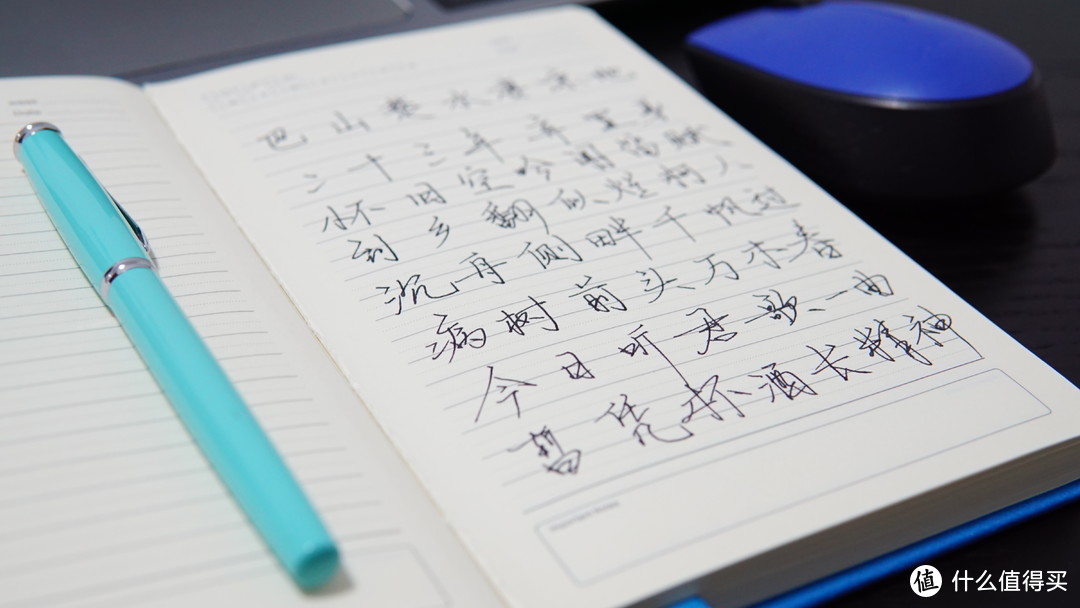 巴山楚水凄凉地
二十三年弃置身
怀旧空吟闻笛赋
到乡翻似烂柯人
沉舟侧畔千帆过
病树前头万木春
今日听君歌一曲
暂凭杯酒长精神
Important Notes
值 什么值得买